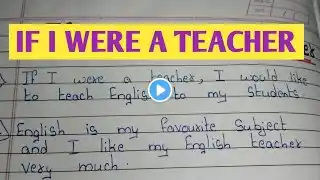 IF I WERE A TEACHER
If I were a teacher, I would like
to teach English to my students.
English is my favourite Subject
and I like my English teacher
very much.